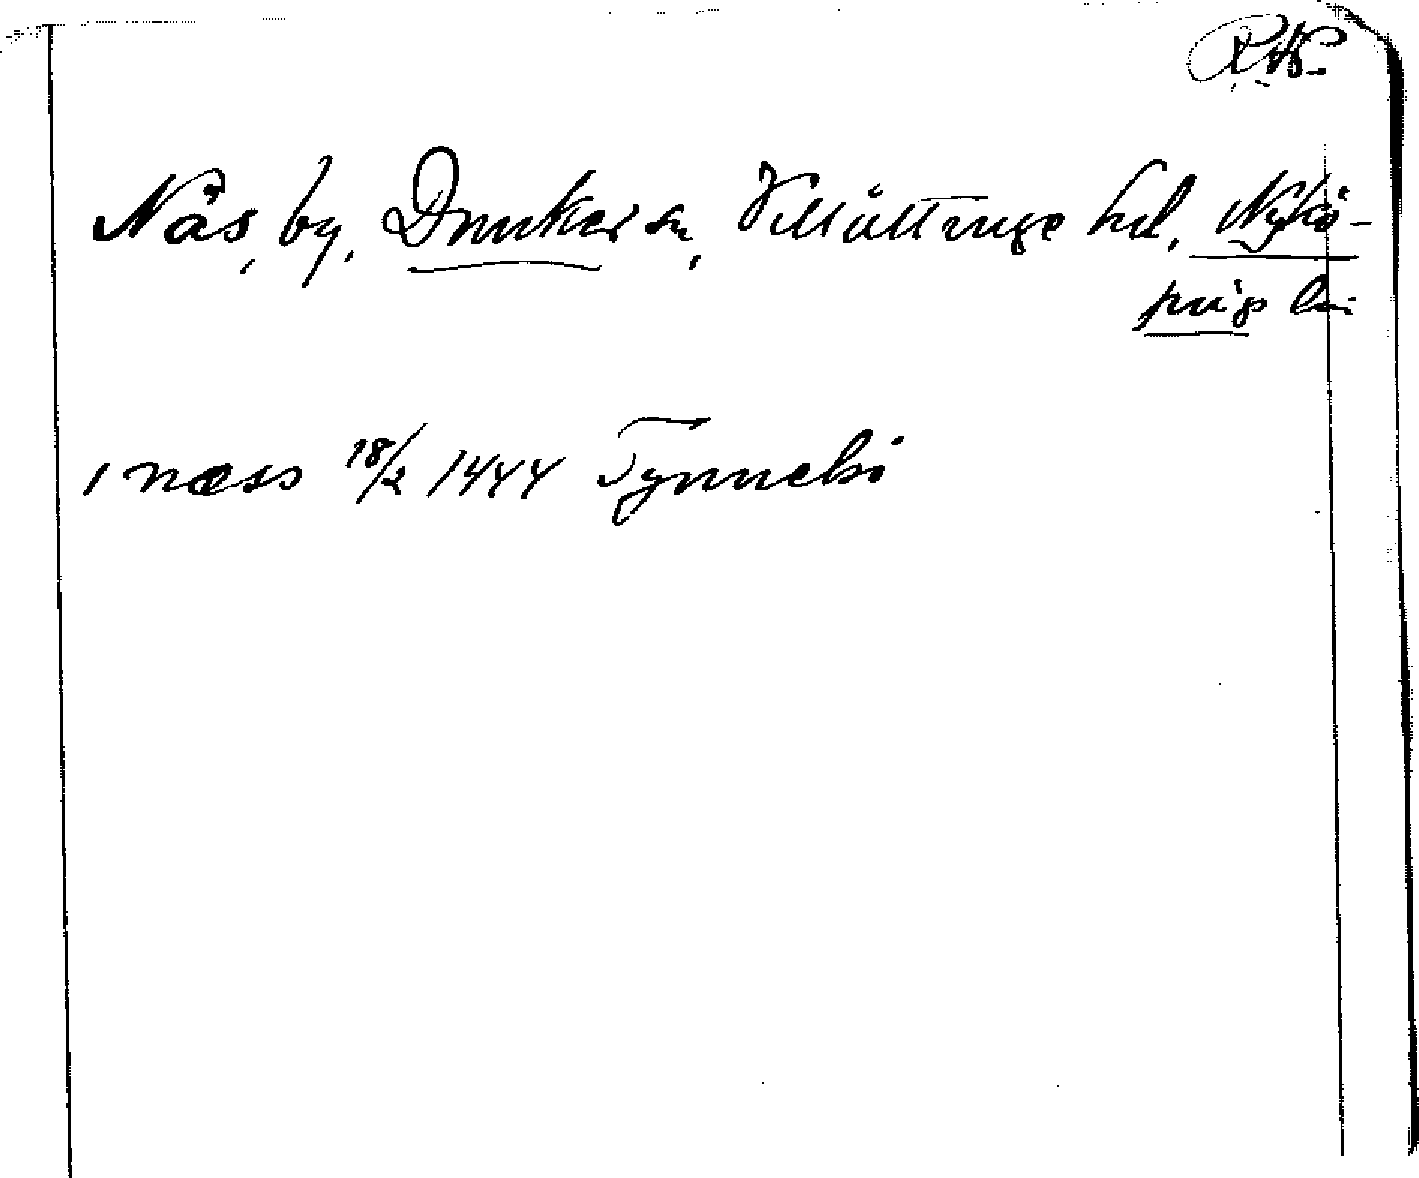 Näs, by, Dunker sn, Villåttinge hd, Nykö-
pings län
i næss 18/2 1444 Tynnelsö